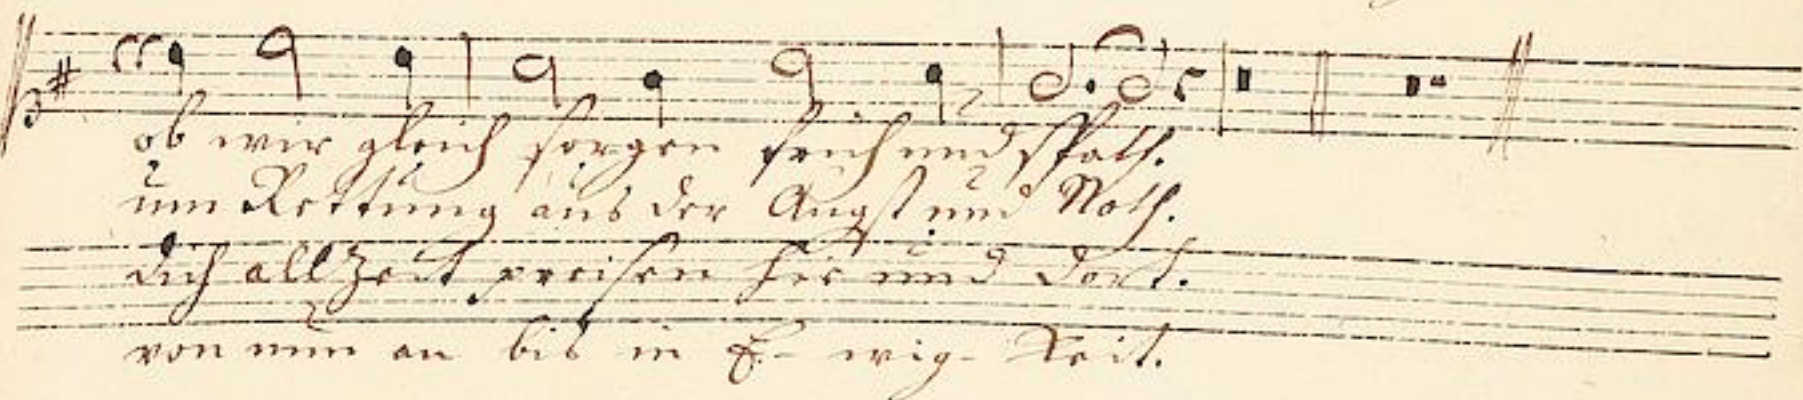 ob wir gleich sorgen früh und spath.
um Rettung aus der Angst und Noth.
dich allzeit preisen hir und dort.
von nun an bis in E- wig- keit.